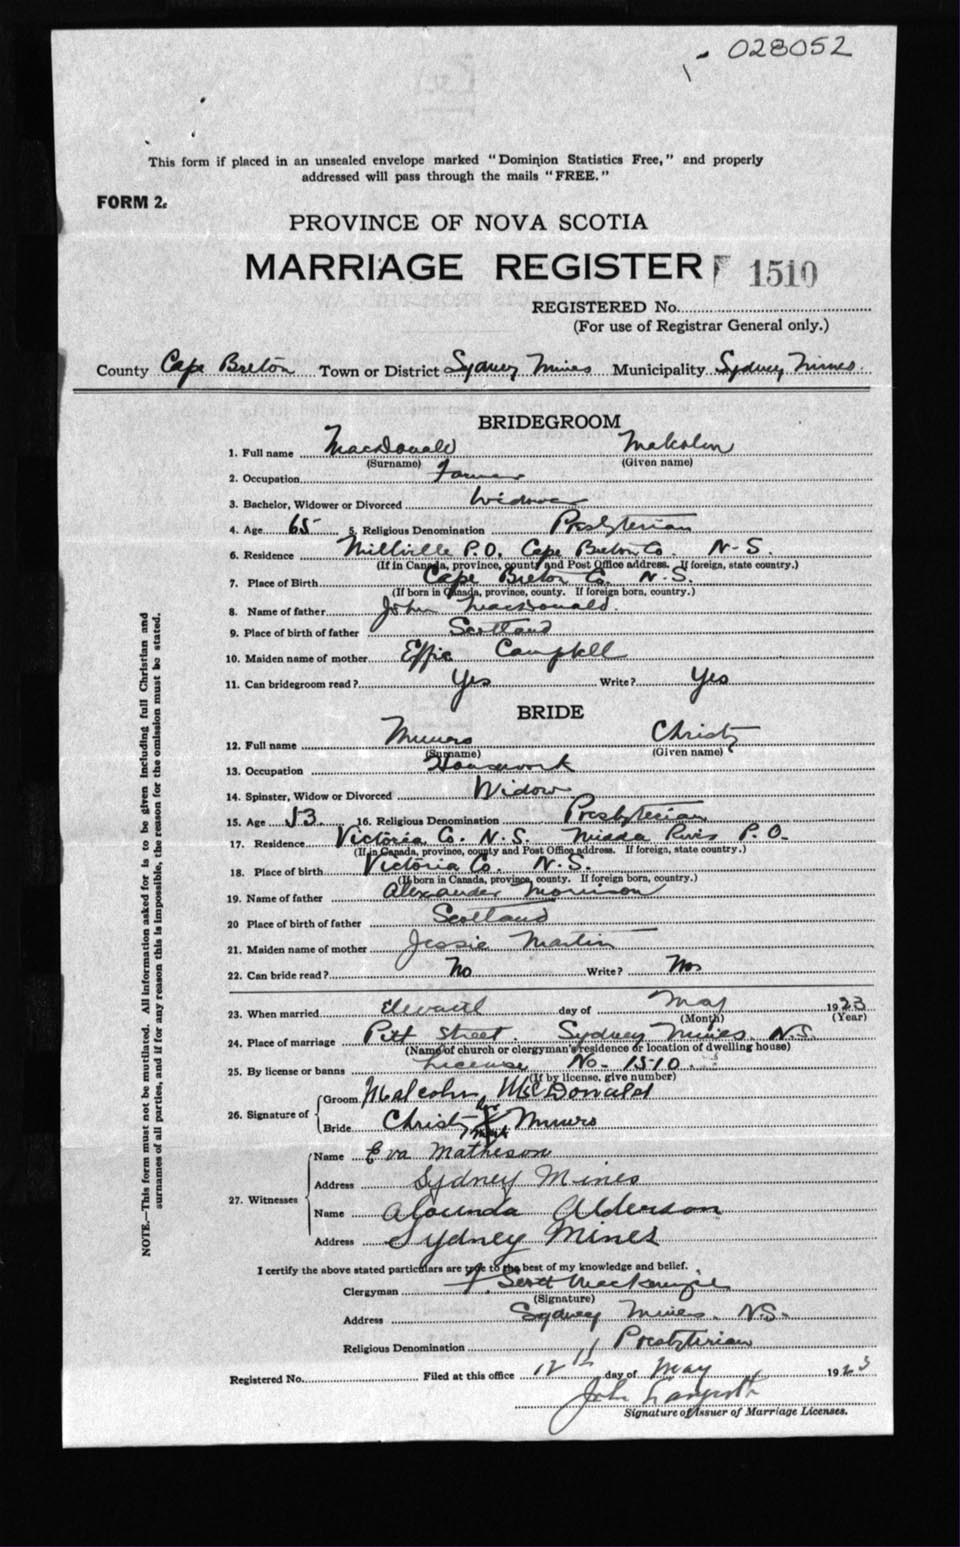 028052
This form if placed in an unsealed envelope marked "Dominion Statistics Free," and properly
addressed will pass through the mails "FREE."
FORM 2.
PROVINCE OF NOVA SCOTIA
MARRIAGE REGISTER F 1510
REGISTERED No.
(For use of Registrar General only.)
County Cape Breton Town or District Sydney Mines Municipality Sydney Mines
BRIDEGROOM
1. Full name MacDonald Malcolm
(Surname) (Given name)
2. Occupation Farmer
3. Bachelor, Widower or Divorced Widower
4. Age 65 5. Religious Denomination Presbyterian
6. Residence Millville P.O. Cape Breton Co. N.S.
(If in Canada, province, county and Post Office address. If foreign, state country.)
7. Place of Birth Cape Breton Co. N.S.
(If born in Canada, province, county. If foreign born, country.)
8. Name of father John MacDonald.
9. Place of birth of father Scotland
10. Maiden name of mother Effie Campbell
11. Can bridegroom read? Yes Write? Yes
BRIDE
12. Full name Munro Christy
(Surname) (Given name)
13. Occupation Housework
14. Spinster, Widow or Divorced Widow
15. Age 53. 16. Religious Denomination Presbyterian
17. Residence Victoria Co. N.S. P.O.
(If in Canada, province, county and Post Office address. If foreign, state country.)
18. Place of birth Victoria Co. N.S.
(If born in Canada, province, county. If foreign born, country.)
19. Name of father Alexander Morrison
20 Place of birth of father Scotland
21. Maiden name of mother Jessie Martin
22. Can bride read? No Write? No
23. When married day of May 1923
(Month) (Year)
24. Place of marriage Pitt Street. Sydney Mines. N.S.
(Name of church or clergyman's residence or location of dwelling house)
25. By license or banns License No. 1510.
(If by license, give number)
26. Signature of
Groom Malcolm McDonald
Bride Christy her X mark Munro
27. Witnesses
Name Eva Matheson
Address Sydney Mines
Name Alderson
Address Sydney Mines
I certify the above stated particulars are true to the best of my knowledge and belief.
Clergyman Scott MacKenzie
(Signature)
Address Sydney Mines. N.S.
Religious Denomination Presbyterian
Registered No. Filed at this office 12th day of May 1923
John
Signature of Issuer of Marriage Licenses.
NOTE.—This form must not be mutilated. All information asked for is to be given including full Christian and
surnames of all parties, and if for any reason this is impossible, the reason for the omission must be stated.